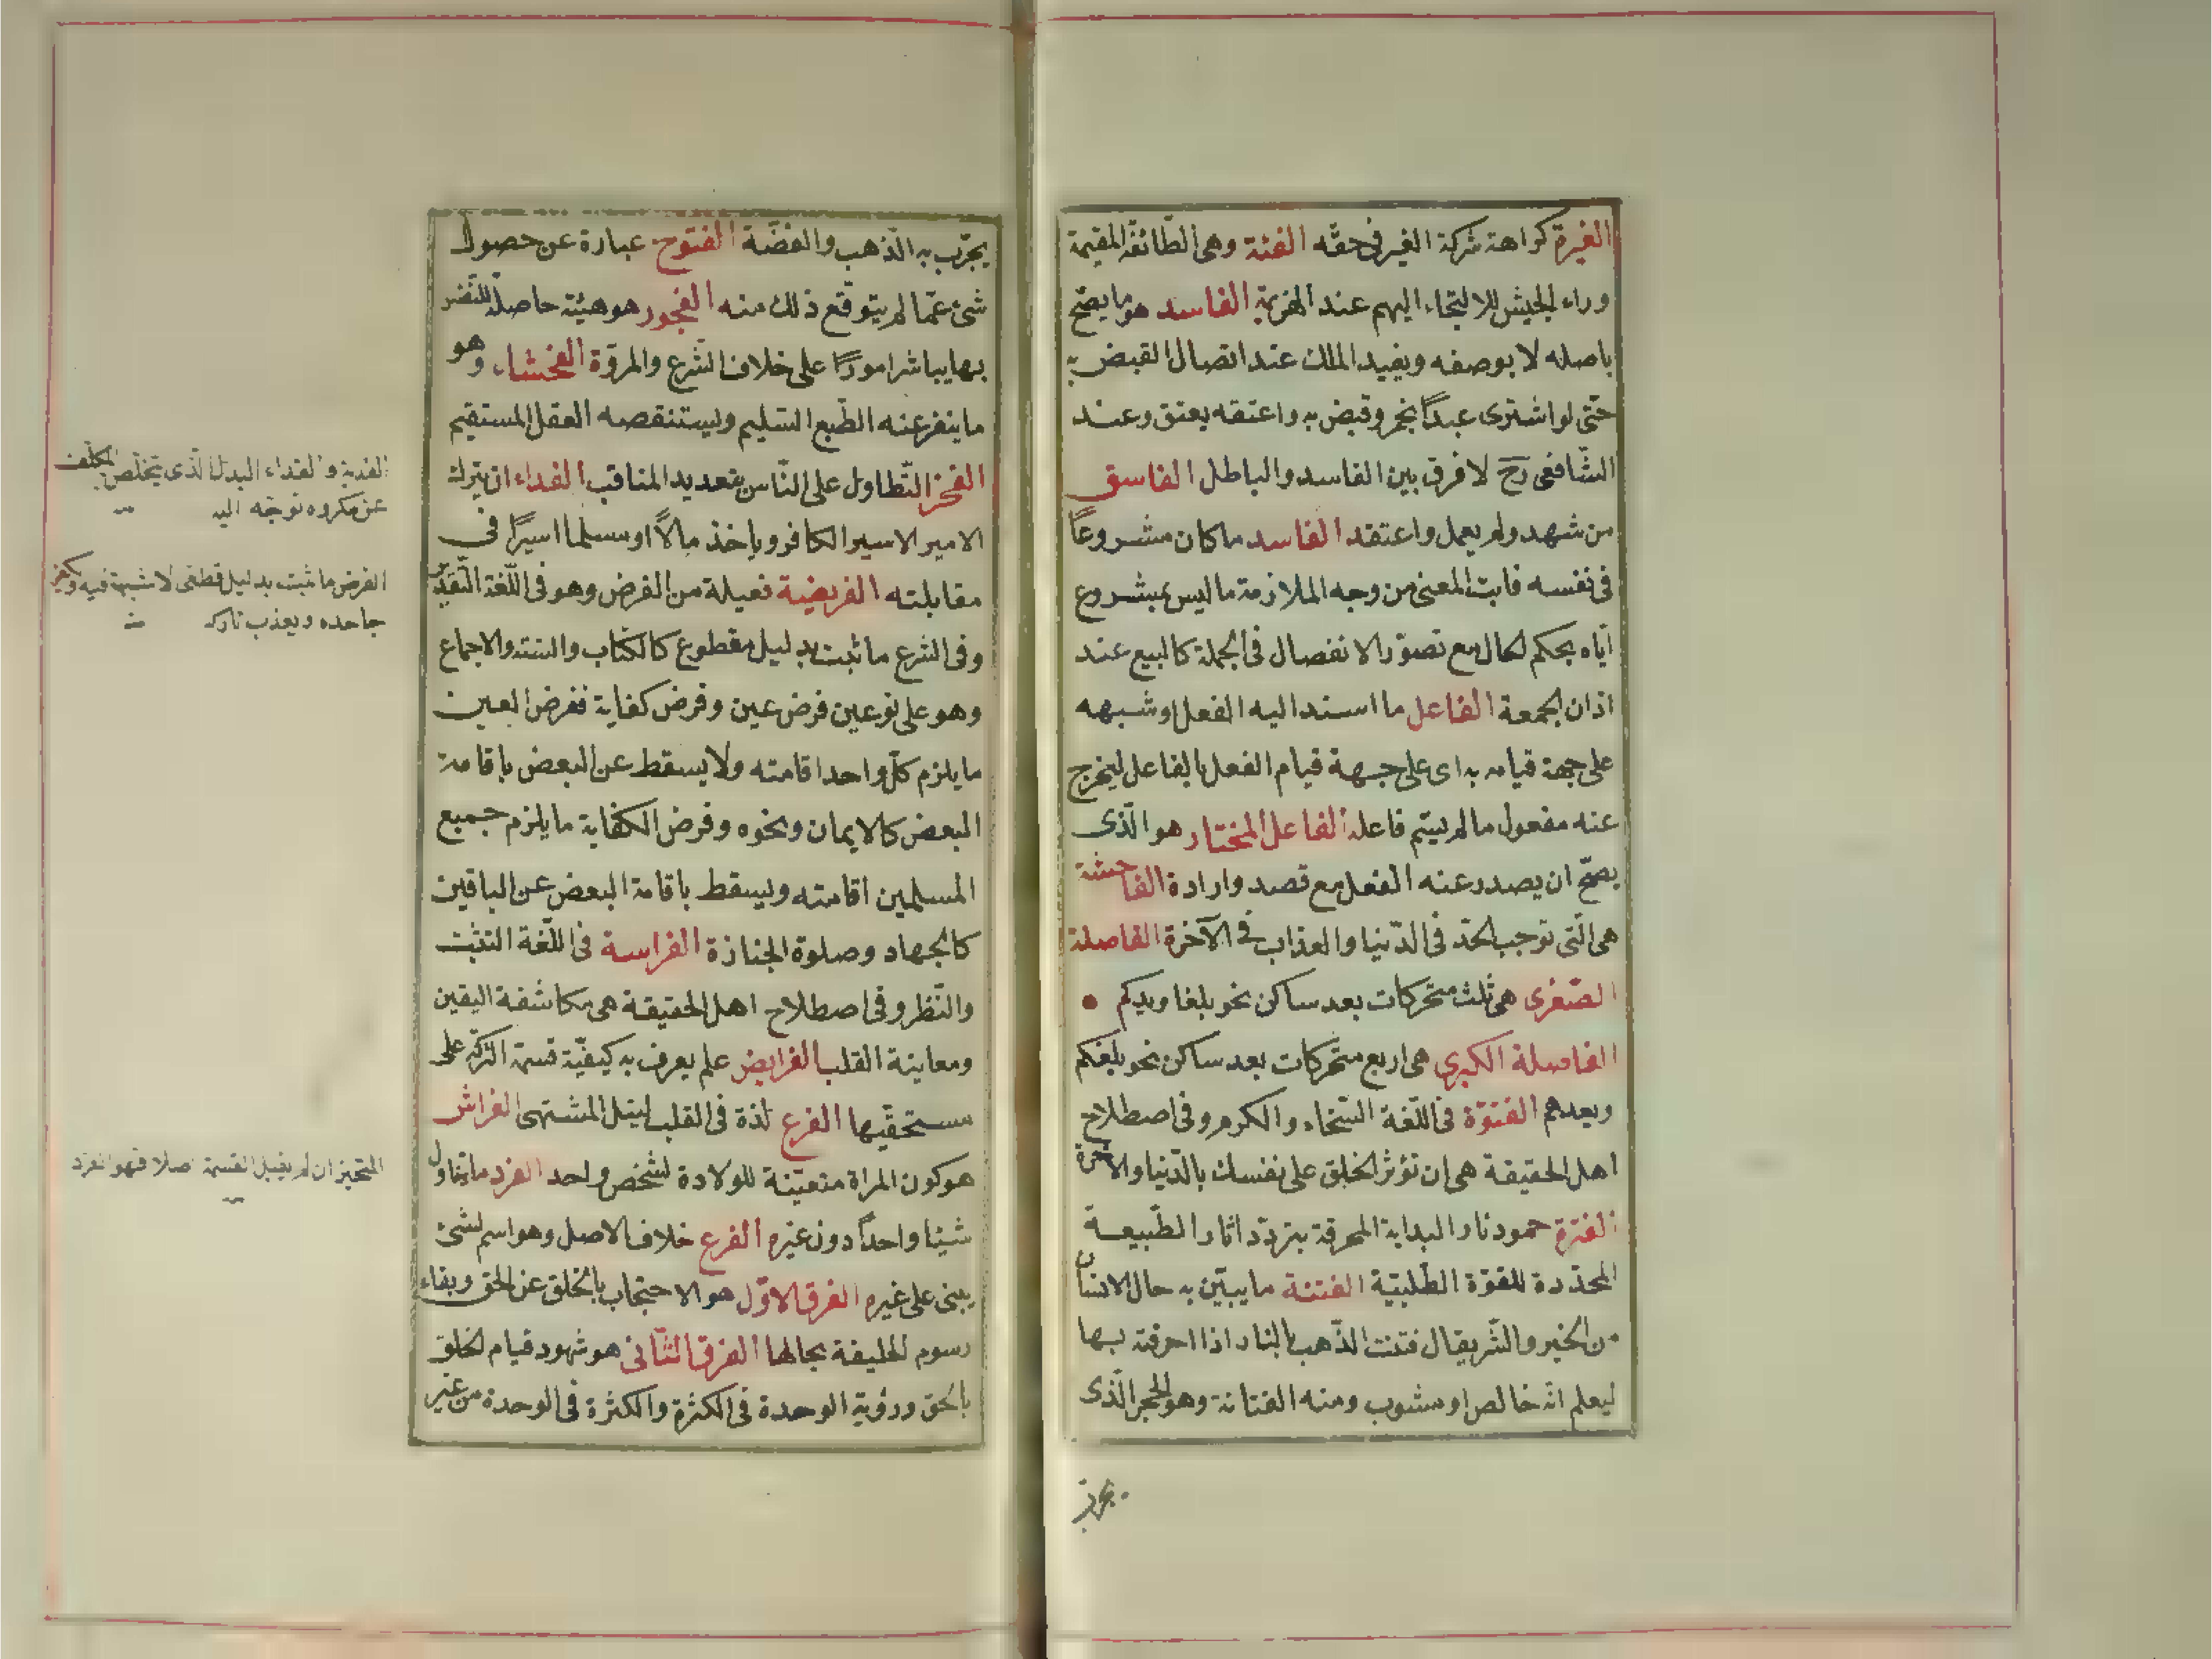 الغيرة كراهة شركة الغير فى حقّه الفئة وهى الطّائفة المقيمة
وراء الجيش للالتجاء اليهم عند الهزيمة الفاسد هو ما يصّح
باصله لا بوصفه ويفيد الملك عند اتصال القبض به
حتّى لو اشترى عبداً بخمر وقبض به واعتقه يعتق وعند
الشّافعى رح لا فرق بين الفاسد والباطل الفاسق
من شهد ولم يعمل واعتقد الفاسد ما كان مشروعاً
فى نفسه فايت المعنى من وجه الملازمة ما ليس بمشروع
ايّاه بحكم الحال مع تصوّر الانفصال فى الجملة كالبيع عند
اذان الجمعة الفاعل ما اسند اليه الفعل او شبهه
على جهة قيامه به اى على جهة قيام الفعل بالفاعل ليخرج
عنه مفعول ما لم يسّم فاعله الفاعل المختار هو الّذى
يصحّ ان يصدر عنه الفعل مع قصد وارادة الفاحشة
هى الّتى توجب الحدّ فى الدّنيا والعذاب فى الآخرة الفاصلة
الصّغرى هى ثلث متحركات بعد ساكن نحو بلغا ويدكم
الفاصلة الكبرى هى اربع متحّركات بعد ساكن نحو بلغكم
ويعدهم الفتوّة فى اللّغة السّخاء والكرم وفى اصطلاح
اهل الحقيقة هى ان تؤثر الخلق على نفسك بالدّنيا والآخرة
الفترة خمود نار البداية المحرقة بتردّد اثار الطّبيعة
المحذّدة للقوّة الطّلبيّة الفتنة ما يبيّن به حال الانسان
من الخير والشّر يقال فتنت الذّهب بالنار اذا احرقته بها
ليعلم انّه خالص او مشوب ومنه الفتانة وهو الحجر الّذى
يجرّب
يجرّب به الّذهب والفضّة الفتوح عبارة عن حصول
شئ عمّا لم يتوقّع ذلك منه الفجور هو هيئة حاصلة للنّفس
بها يباشر امورًا على خلاف الشّرع والمروّة الفحشاء وهو
ما ينفر عنه الطّبع السّليم ويستنقصه العقل المستقيم
الفخر التّطاول على النّاس بتعديد المناقب الفداء ان يترك
الامير الاسير الكافر وياخذ مالاً او مسلما اسيرًا فى
مقابلته الفريضة فعيلة من الفرض وهو فى اللّغة التّقدير
وفى الشرع ما ثبت بدليل مقطوع كالكتاب والسّنة والاجماع
وهو على نوعين فرض عين وفرض كفاية ففرض العين
ما يلزم كلّ واحد اقامته ولا يسقط عن البعض باقامة
البعض كالايمان ونحوه وفرض الكفاية ما يلزم جميع
المسلمين اقامته ويسقط باقامة البعض عن الباقين
كالجهاد وصلوة الجنازة الفراسة فى اللّغة التثبّت
والنّظر وفى اصطلاح اهل الحقيقة هى مكاشفة اليقين
ومعاينة القلب الفرايض علم يعرف به كيفيّة قسمة التّركة على
مستحقّيها الفرح لذة فى القلب لنيل المشتهى الفراش
هو كون المراة متعيّنة للولادة لشخص واحد الفرد ما يتناول
شيئا واحداً دون غيره الفرع خلاف الاصل وهو اسم لشئ
يبنى على غيره الفرق الاوّل هو الاحتجاب بالخلق عن الحق وبقاء
رسوم الخليقة بحالها الفرق الثّانى هو شهود قيام الخلق
بالحق ورؤية الوحدة فى الكثرة والكثرة فى الوحدة من غير
الفدية والفداء البدل الّذى يتخلّص المكلّف
عن مكروه توجّه اليه
الفرض ما ثبت بدليل قطعى لا شبهة فيه ويكفر
جاحده ويعذب تاركه
المتحيز ان لم يقبل القسمة اصلا فهو الفرد